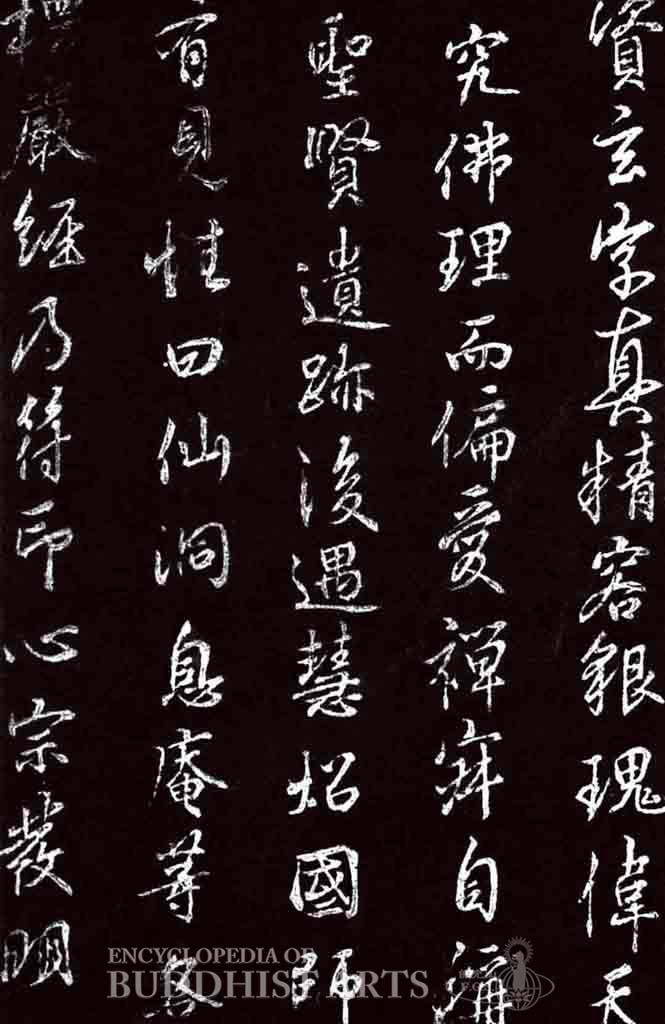 資玄字真精容貌瑰偉天
究佛理而偏愛禪寂自
聖賢遺跡後遇慧炤國師
有見性曰仙洞息庵等
楞嚴經乃符印心宗發明
ENCYCLOPEDIA OF
BUDDHIST ARTS